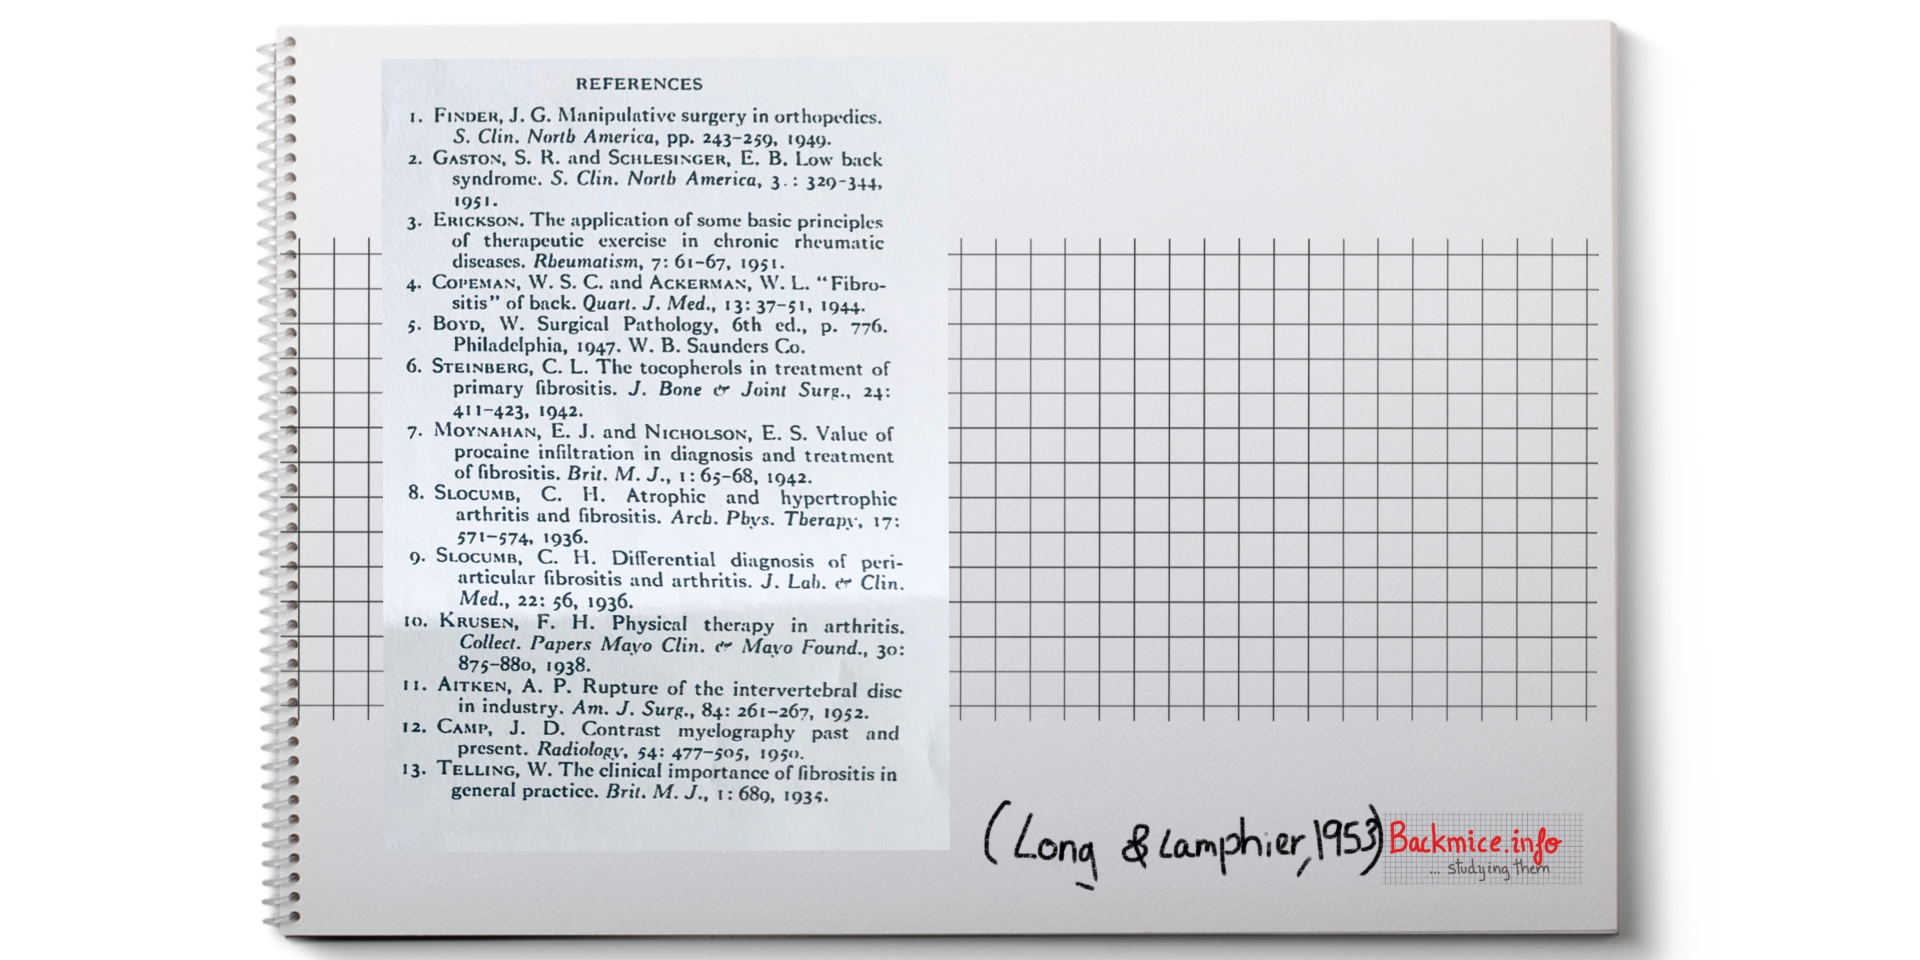 REFERENCES
1. FINDER, J. G. Manipulative surgery in orthopedics.
S. Clin. North America, pp. 243-259, 1949.
2. GASTON, S. R. and SCHLESINGER, E. B. Low back
syndrome. S. Clin. North America, 3.: 329-344,
1951.
3. ERICKSON. The application of some basic principles
of therapeutic exercise in chronic rheumatic
diseases. Rheumatism, 7: 61-67, 1951.
4. COPEMAN, W. S. C. and ACKERMAN, W. L. "Fibro-
sitis" of back. Quart. J. Med., 13: 37-51, 1944.
5. BOYD, W. Surgical Pathology, 6th ed., p. 776.
Philadelphia, 1947. W. B. Saunders Co.
6. STEINBERG, C. L. The tocopherols in treatment of
primary fibrositis. J. Bone & Joint Surg., 24:
411-423, 1942.
7. MOYNAHAN, E. J. and NICHOLSON, E. S. Value of
procaine infiltration in diagnosis and treatment
of fibrositis. Brit. M. J., 1: 65-68, 1942.
8. SLOCUMB, C. H. Atrophic and hypertrophic
arthritis and fibrositis. Arch. Phys. Therapy, 17:
571-574, 1936.
9. SLOCUMB, C. H. Differential diagnosis of peri-
articular fibrositis and arthritis. J. Lab. & Clin.
Med., 22: 56, 1936.
10. KRUSEN, F. H. Physical therapy in arthritis.
Collect. Papers Mayo Clin. & Mayo Found., 30:
875-880, 1938.
11. AITKEN, A. P. Rupture of the intervertebral disc
in industry. Am. J. Surg., 84: 261-267, 1952.
12. CAMP, J. D. Contrast myelography past and
present. Radiology, 54: 477-505, 1950.
13. TELLING, W. The clinical importance of fibrositis in
general practice. Brit. M. J., 1: 689, 1935.
(Long & Lamphier, 1953)
Backmice.info
... studying them